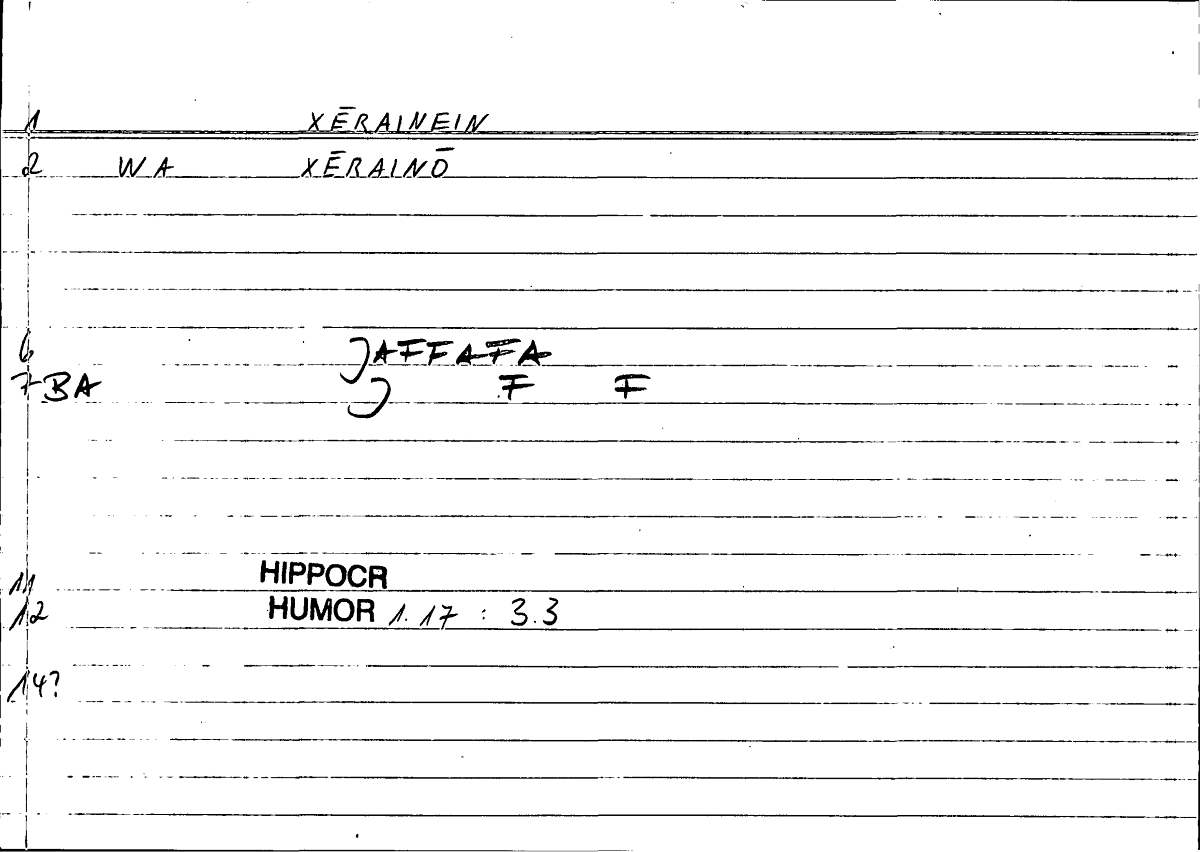 1 XĒRAINEIN
2 WA XĒRAINŌ
6
7 BA F F
11 HIPPOCR
12 HUMOR 1.17 : 3.3
14?